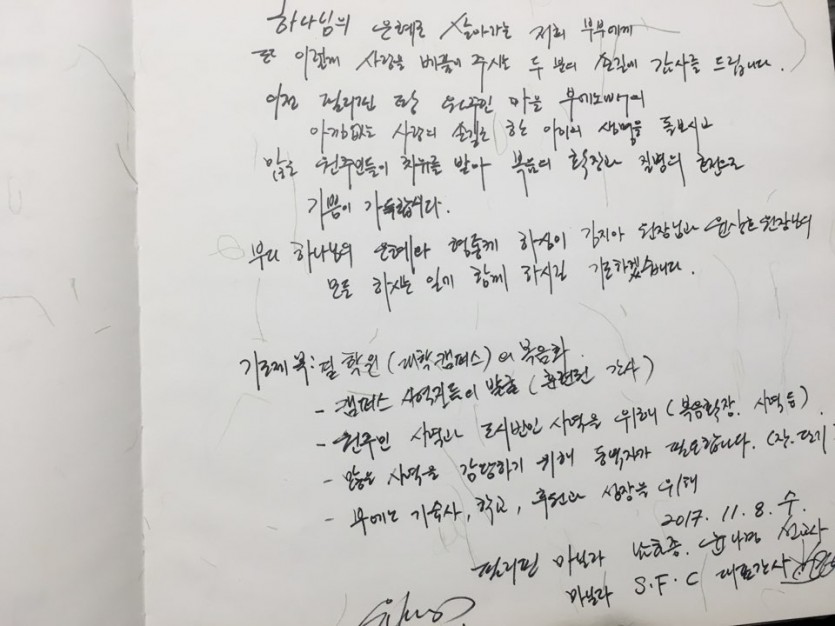 하나님의 은혜로 살아가는 저희 부부에게
또 이렇게 사랑을 베풀어 주시는 두 분의 손길에 감사를 드립니다.
이전 필리핀 땅 원주민 마을 부에노
아낌없는 사랑의 손길로 한 아이의 생명을 돌보시고
많은 원주민들이 치유를 받아 복음의 확장과 질병의
기쁨이 가득합니다.
부디 하나님의 은혜와 형통케 하심이 김지아 원장님과 원장님의
모든 하시는 일에 함께 하시길 기도하겠습니다.
기도제목: 필 학원(대학캠퍼스)의 복음화
- 캠퍼스 사역자들이 발굴 (훈련된 간사)
- 원주민 사역과 도시빈민 사역을 위해 (복음확장. 사역등)
- 많은 사역을 감당하기 위해 동역자가 필요합니다. (장.단기
- 부에노 기숙사, 학교, 후원과 성장을 위해
2017. 11. 8. 수.
필리핀 마닐라 선교사
마닐라 S.F.C 대표간사